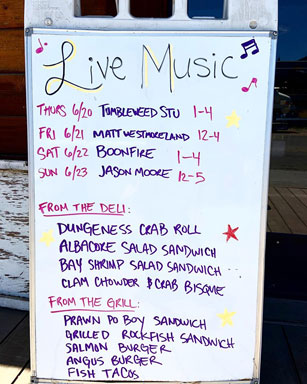 Live Music
THURS 6/20 TUMBLEWEED STU 1-4
FRI 6/21 MATT WESTMORELAND 12-4
SAT 6/22 BOONFIRE 1-4
SUN 6/23 JASON MOORE 12-5
FROM THE DELI:
DUNGENESS CRAB ROLL
ALBACORE SALAD SANDWICH
BAY SHRIMP SALAD SANDWICH
CLAM CHOWDER & CRAB BISQUE
FROM THE GRILL:
PRAWN PO BOY SANDWICH
GRILLED ROCKFISH SANDWICH
SALMIN BURGER
ANGUS BURGER
FISH TACOS